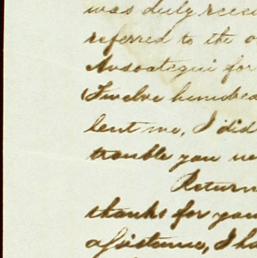 was duly recei
referred to the o
Ansoategui for
(Twelve hundred
lent me, I did
trouble you
Return
thanks for you
assistance, I ha